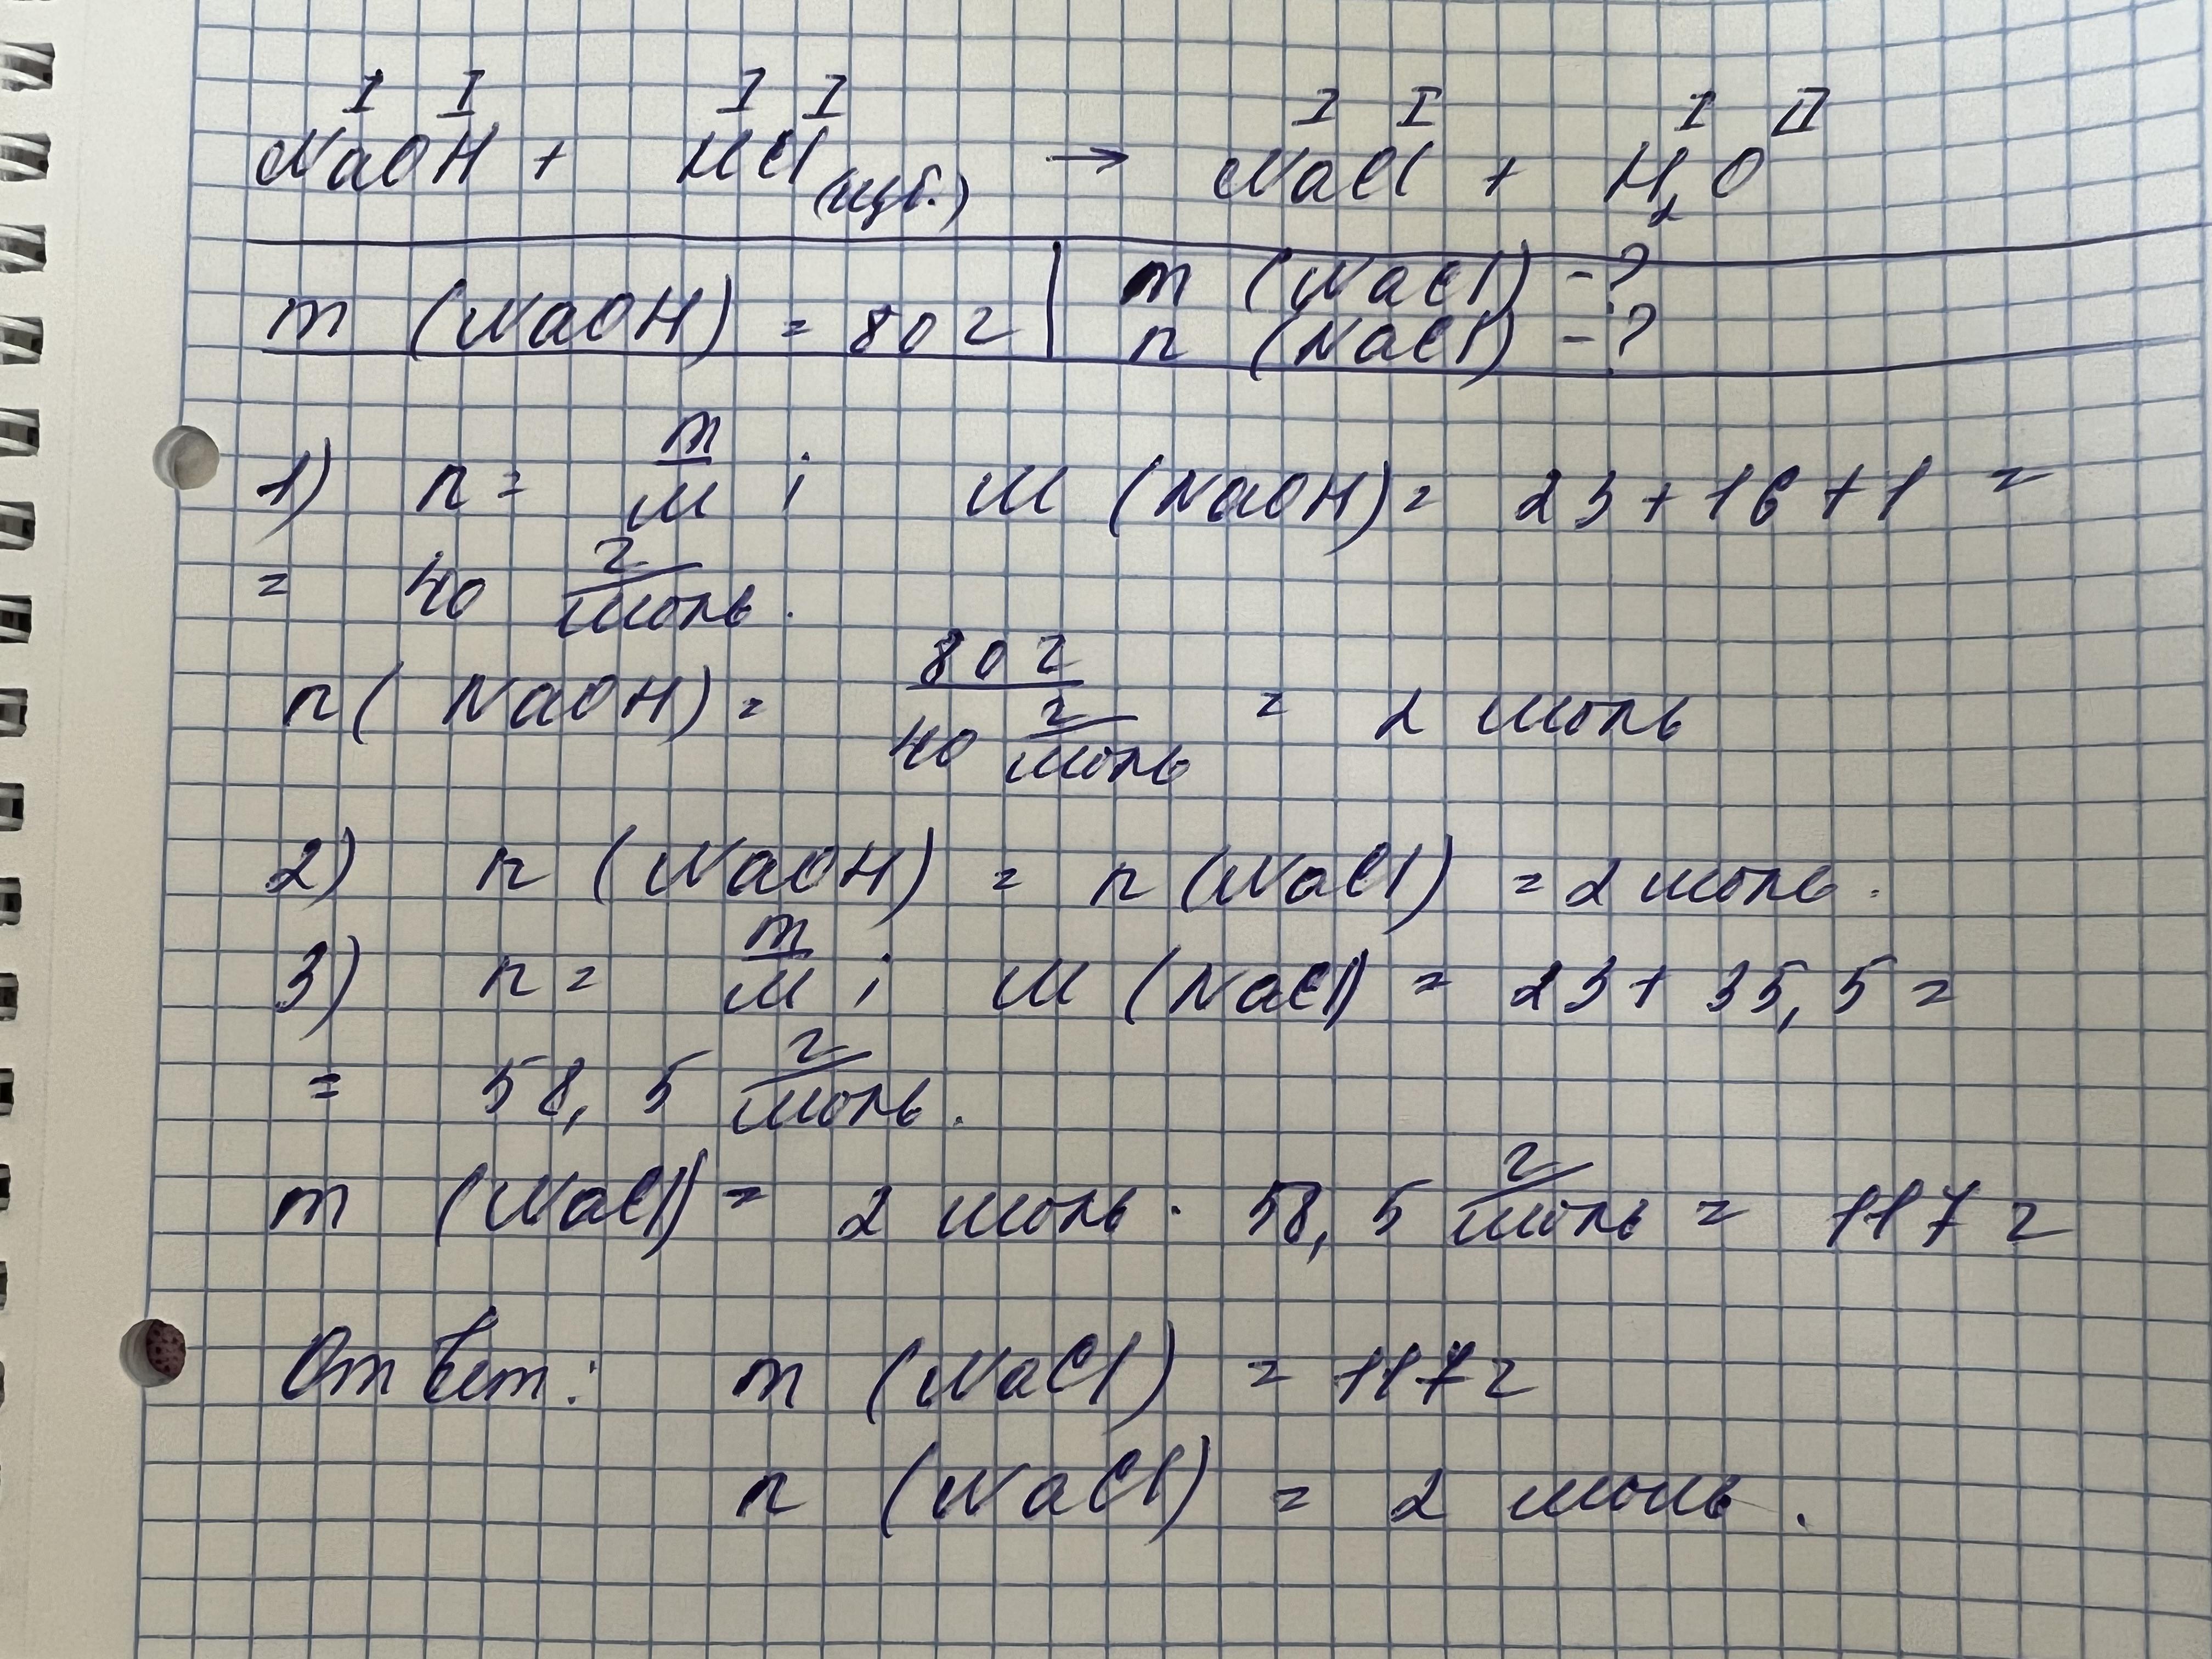 I I I I I I I II
NaOH + HCl (изб.) → NaCl + H₂O
m (NaOH) = 80 г | m (NaCl) - ?
n (NaCl) - ?
1) n = m/M ; M (NaOH) = 23 + 16 + 1 =
= 40 г/моль.
n( NaOH) = 80 г / 40 г/моль = 2 моль
2) n (NaOH) = n (NaCl) = 2 моль.
3) n = m/M ; M (NaCl) = 23 + 35,5 =
= 58,5 г/моль.
m (NaCl) = 2 моль · 58,5 г/моль = 117 г
Ответ: m (NaCl) = 117 г
n (NaCl) = 2 моль.